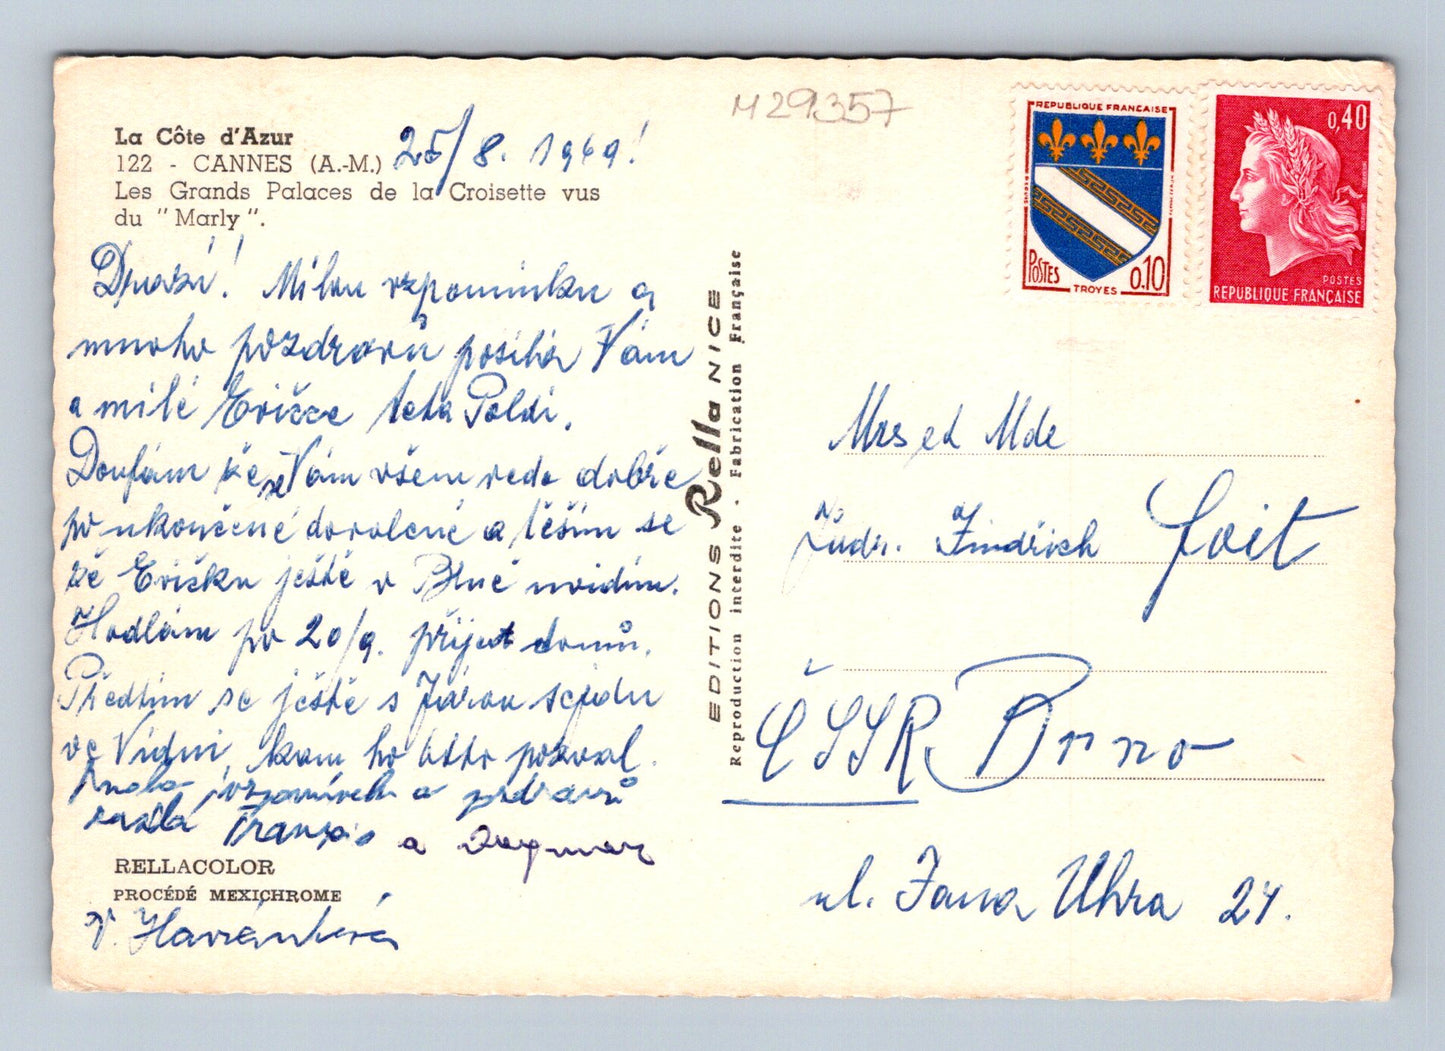 La Côte d'Azur
122 - CANNES (A.-M.) 25/8. 1969!
Les Grands Palaces de la Croisette vus
du "Marly".
Drazí! Milou vzpomínku a
mnoho pozdravů posílá Vám
a milé Evičce teta Poldi.
Doufám že se Vám všem vede dobře
po ukončené dovolené a těším se
že Evičku ještě v Brně uvidím.
Hodlám po 20/9. přijet domů.
Předtím se ještě s Járou sejdu
ve Vídni, kam ho Otto pozval.
Mnoho vzpomínek a pozdravů
François a Dagmar
RELLACOLOR
PROCÉDÉ MEXICHROME
EDITIONS Rella NICE
Reproduction interdite . Fabrication Française
M29357
REPUBLIQUE FRANCAISE
POSTES
TROYES
0.10
0,40
POSTES
REPUBLIQUE FRANÇAISE
Mrs et Mde
Judr. Jindřich Foit
ČSSR Brno
ul. Jana Uhra 24.